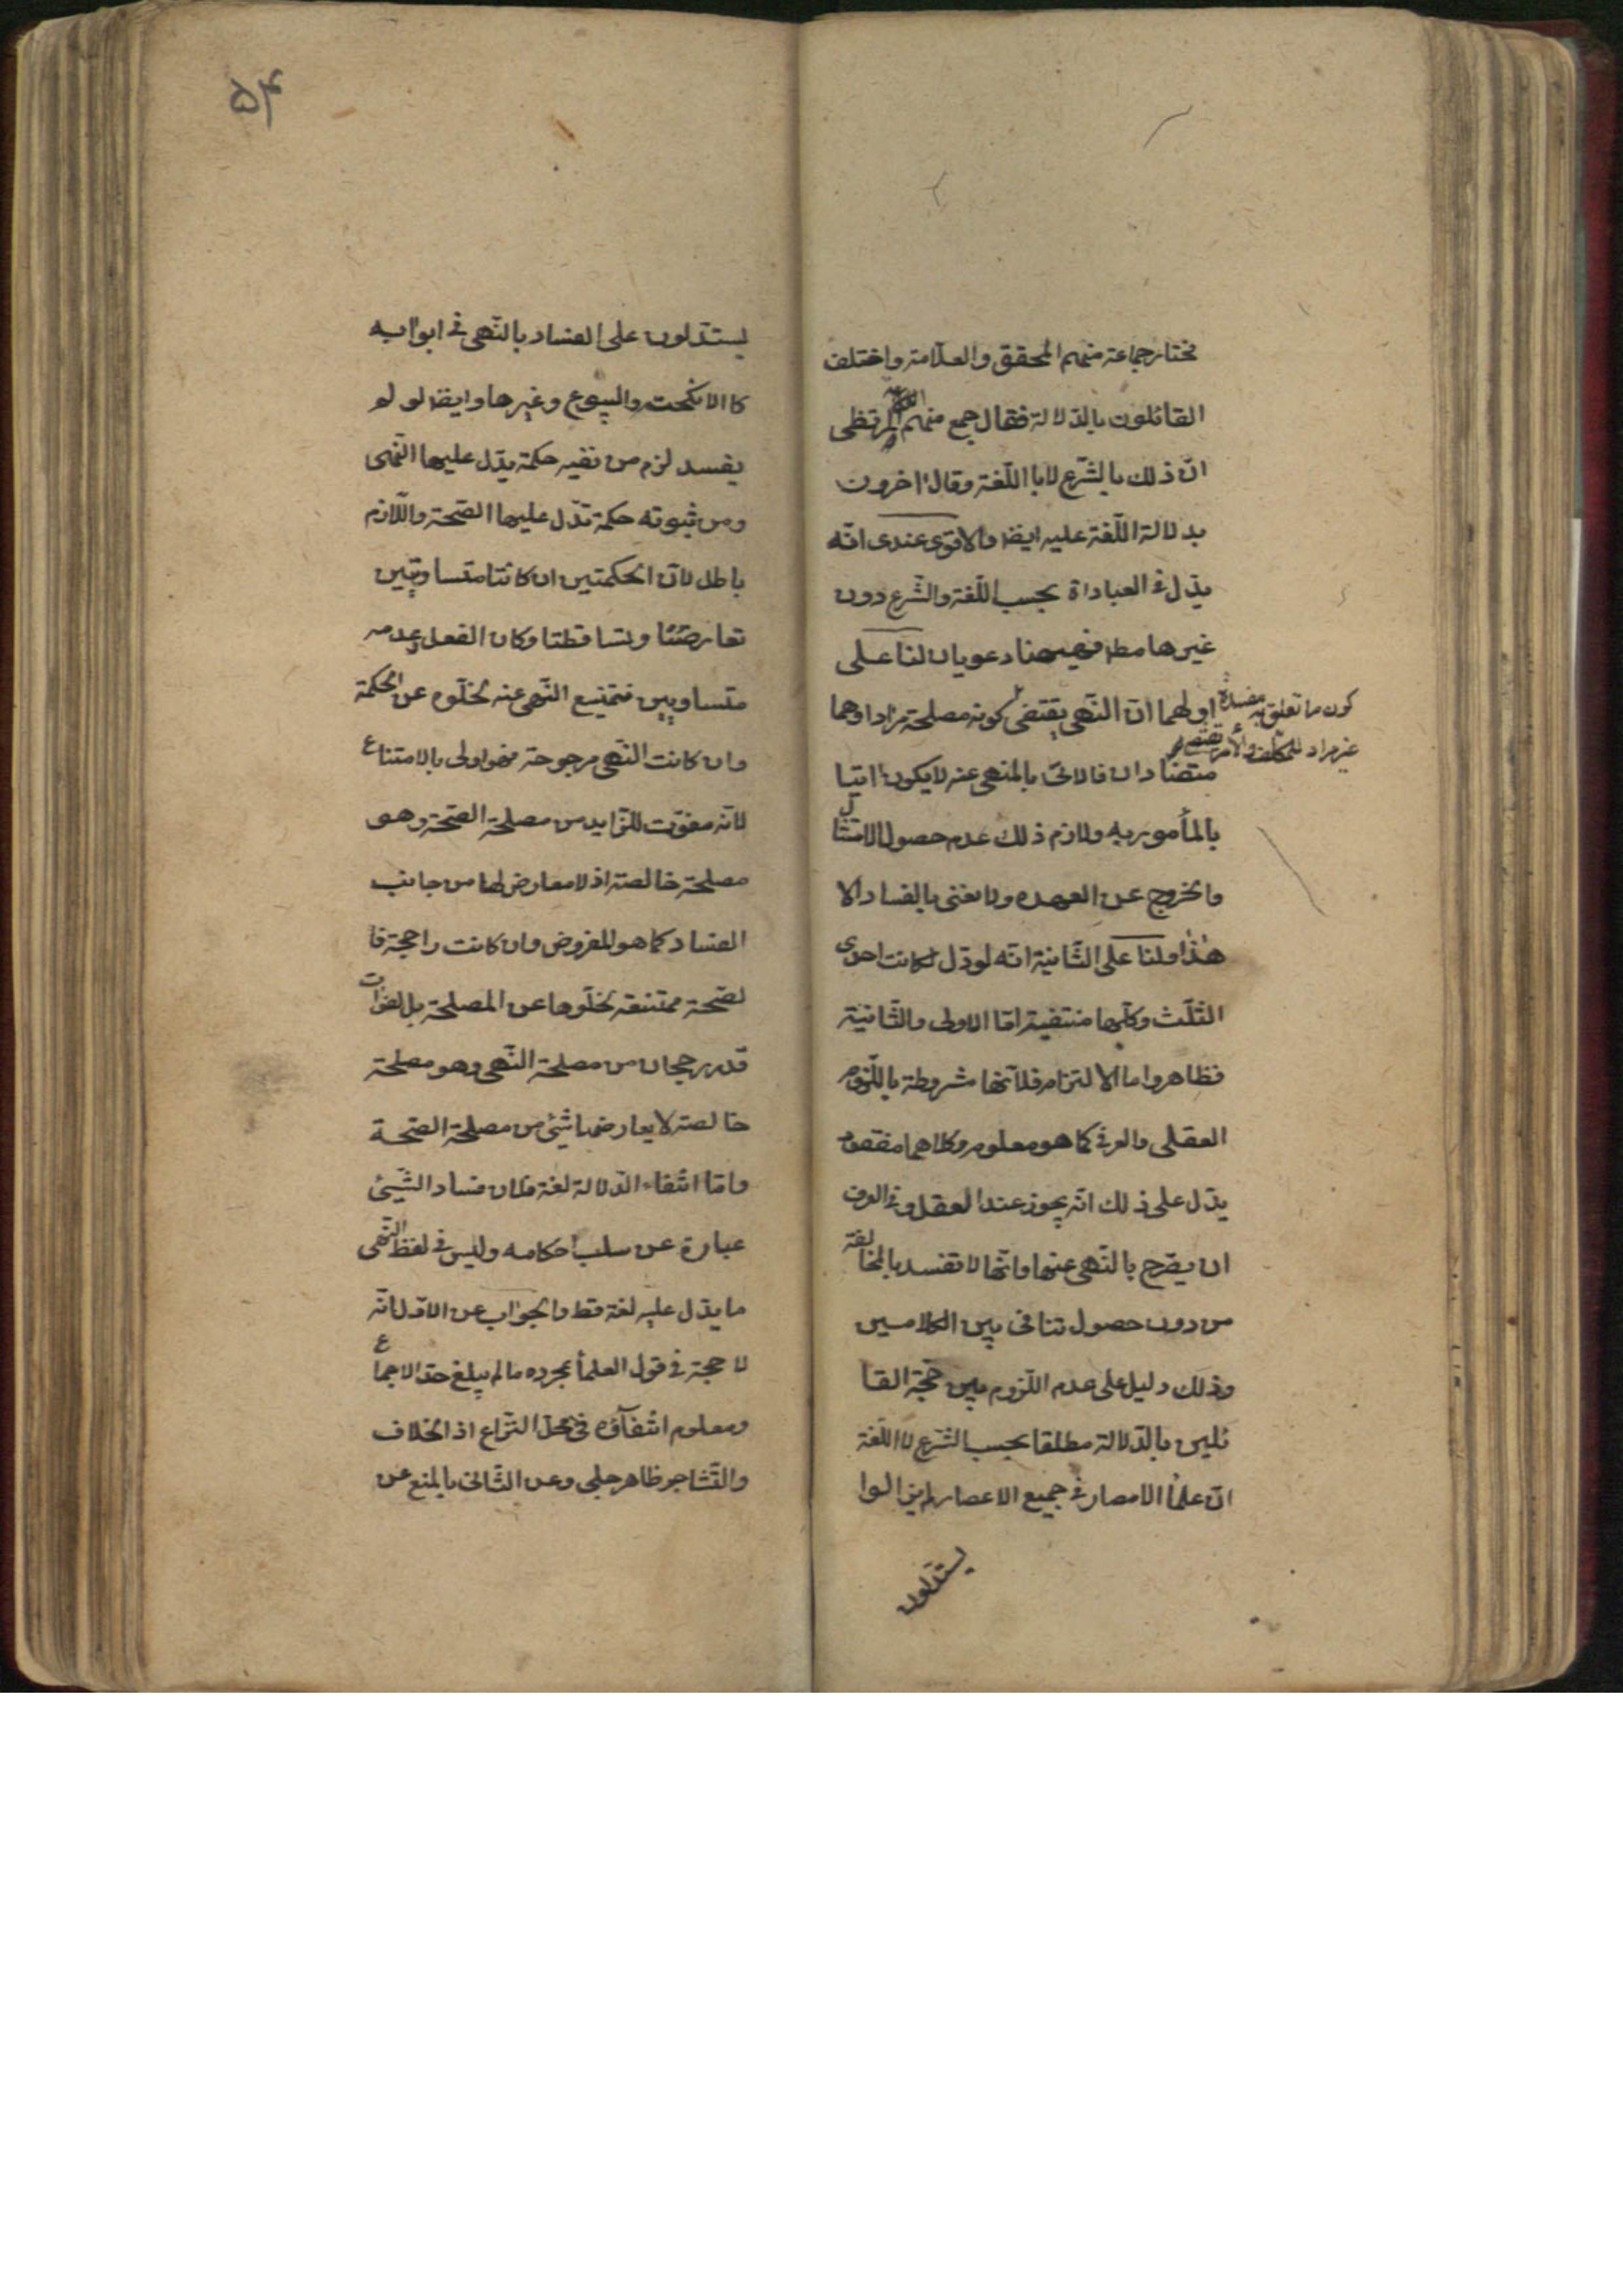 مختار جماعة منهم المحقق والعلامة واختلف
القائلون بالدّلالة فقال جمع منهم المرتظى
انّ ذلك بالشّرع لا باللّغة وقال اخرون
بدلالة اللّغة عليه ايضا والاقوى عندى انّه
يدّل فى العباداة بحسب اللّغة والشّرع دون
غيرها مط فهيهنا دعويان لنا على
اولهما انّ النّهى يقتضى كونه مصلحة مرادا وهما
كون ما تعلق به مفسدة
غير مراد للمكلف والامر يقتضى
متضادان فالاتى بالمنهى عنه لا يكون اتيا
بالمأمور به ولازم ذلك عدم حصول الامتثال
والخروج عن العهده ولا نعنى بالفساد الا
هذا ولنا على الثّانية انّه لو دّل لكانت احدى
الثّلث وكلّها منتفية امّا الاولى والثّانية
فظاهر واما الالتزام فلانّها مشروطة باللّزوم
العقلى والعرفى كما هو معلوم وكلاهما مفقود
يدّل على ذلك انّه يجوز عند العقل وفى العرف
ان يصّرح بالنّهى عنها وانّها لا تفسد بالمخالفة
من دون حصول تنافى بين الكلامين
وذلك دليل على عدم اللّزوم بين حجّة القا
ئلين بالدّلالة مطلقا بحسب الشّرع لا اللّغة
انّ علماُ الامصار فى جميع الاعصار لم يزالوا
يستدلون
۵۴
يستدّلون على الفساد بالنّهى فى ابوابه
كالانكحت والبيوع وغيرها وايضا لو لم
يفسد لزم من نفيه حكمة يدّل عليها النّهى
ومن ثبوته حكمة تدّل عليها الصّحة واللّازم
باطل لانّ الحكمتين ان كانتا متساوتين
تعارضتا وتساقطتا وكان الفعل وعدمه
متساويين فيمتنع النّهى عنه لخلّوه عن الحكمة
وان كانت النّهى مرجوحة فهو اولى بالامتناع
لانّه مفوّت للزّايد من مصلحة الصّحة وهو
مصلحة خالصة اذ لا معارض لها من جانب
الفساد كما هو المفروض وان كانت راجحة فا
لصّحة ممتنعة لخلّوها عن المصلحة بل لفوات
قدر رجحان من مصلحة النّهى وهو مصلحة
خالصة لا يعارضها شئ من مصلحة الصّحة
وامّا انتفاء الدّلالة لغة فلان فساد الشّيئ
عبارة عن سلب احكامه وليس فى لفظ النّهى
ما يدّل عليه لغة قط والجواب عن الاوّل انّه
لا حجة فى قول العلماُ بمجرده ما لم يبلغ حدّ الاجماع
ومعلوم انتفآؤه فى محلّ النّزاع اذ الخلاف
والتّشاجر ظاهر جلى وعن الثّانى بالمنع عن